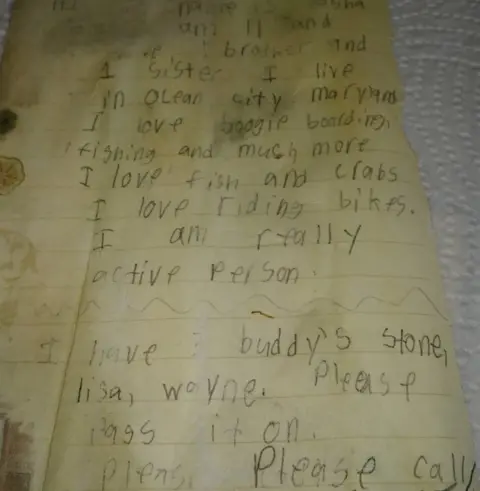 am 11 and
brother and
1 sister I live
in Ocean city maryland
I love boogie boarding,
fishing and much more
I love fish and crabs
I love riding bikes.
I am really
active person.
I have buddy's stone,
lisa, wayne. Please
pass it on.
Please call